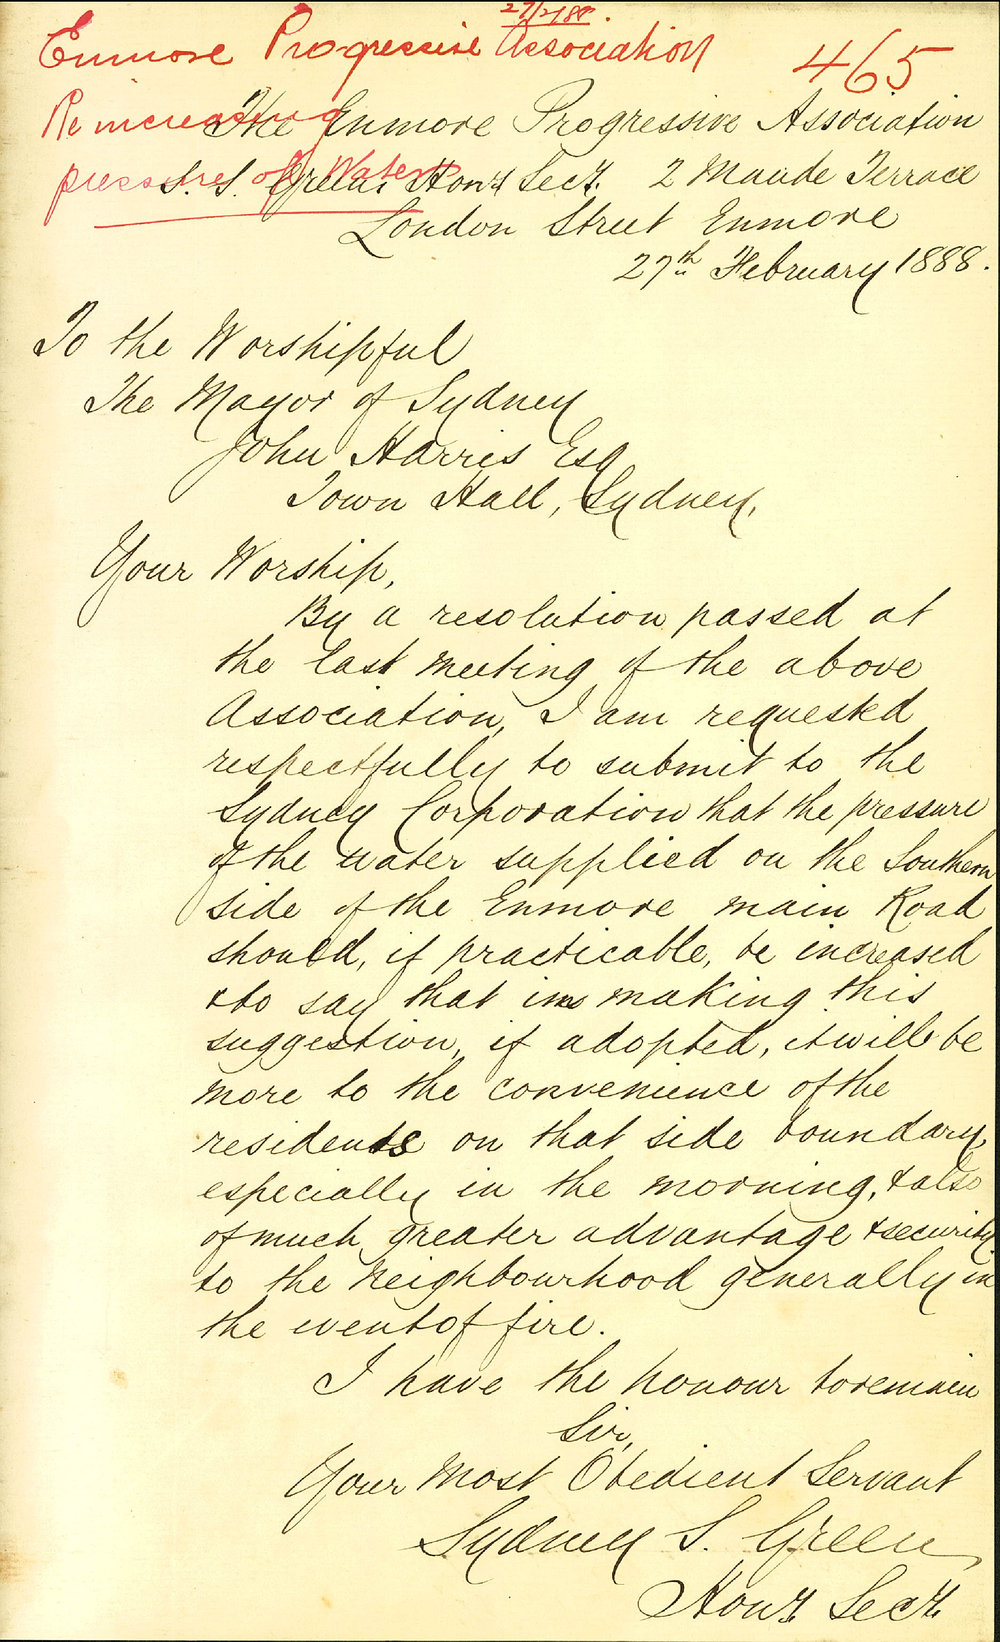 27/2/88.
Enmore Progressive Association
465
Re increasing
pressure of Water
The Enmore Progressive Association
S. S. Green, Hony Secy. 2 Maude Terrace
London Street Enmore
27th February 1888.
To the Worshipful
The Mayor of Sydney
John Harris Esq
Town Hall, Sydney,
Your Worship,
By a resolution passed at
the last meeting of the above
Association, I am requested
respectfully to submit to the
Sydney Corporation that the pressure
of the water supplied on the Southern
side of the Enmore main Road
should, if practicable, be increased
& to say that in making this
suggestion, if adopted, it will be
more to the convenience of the
residents on that side boundary,
especially in the morning, & also
of much greater advantage & security
to the neighbourhood generally in
the event of fire.
I have the honour to remain
Sir,
Your Most Obedient Servant
Sydney S. Green,
Hony Secy.